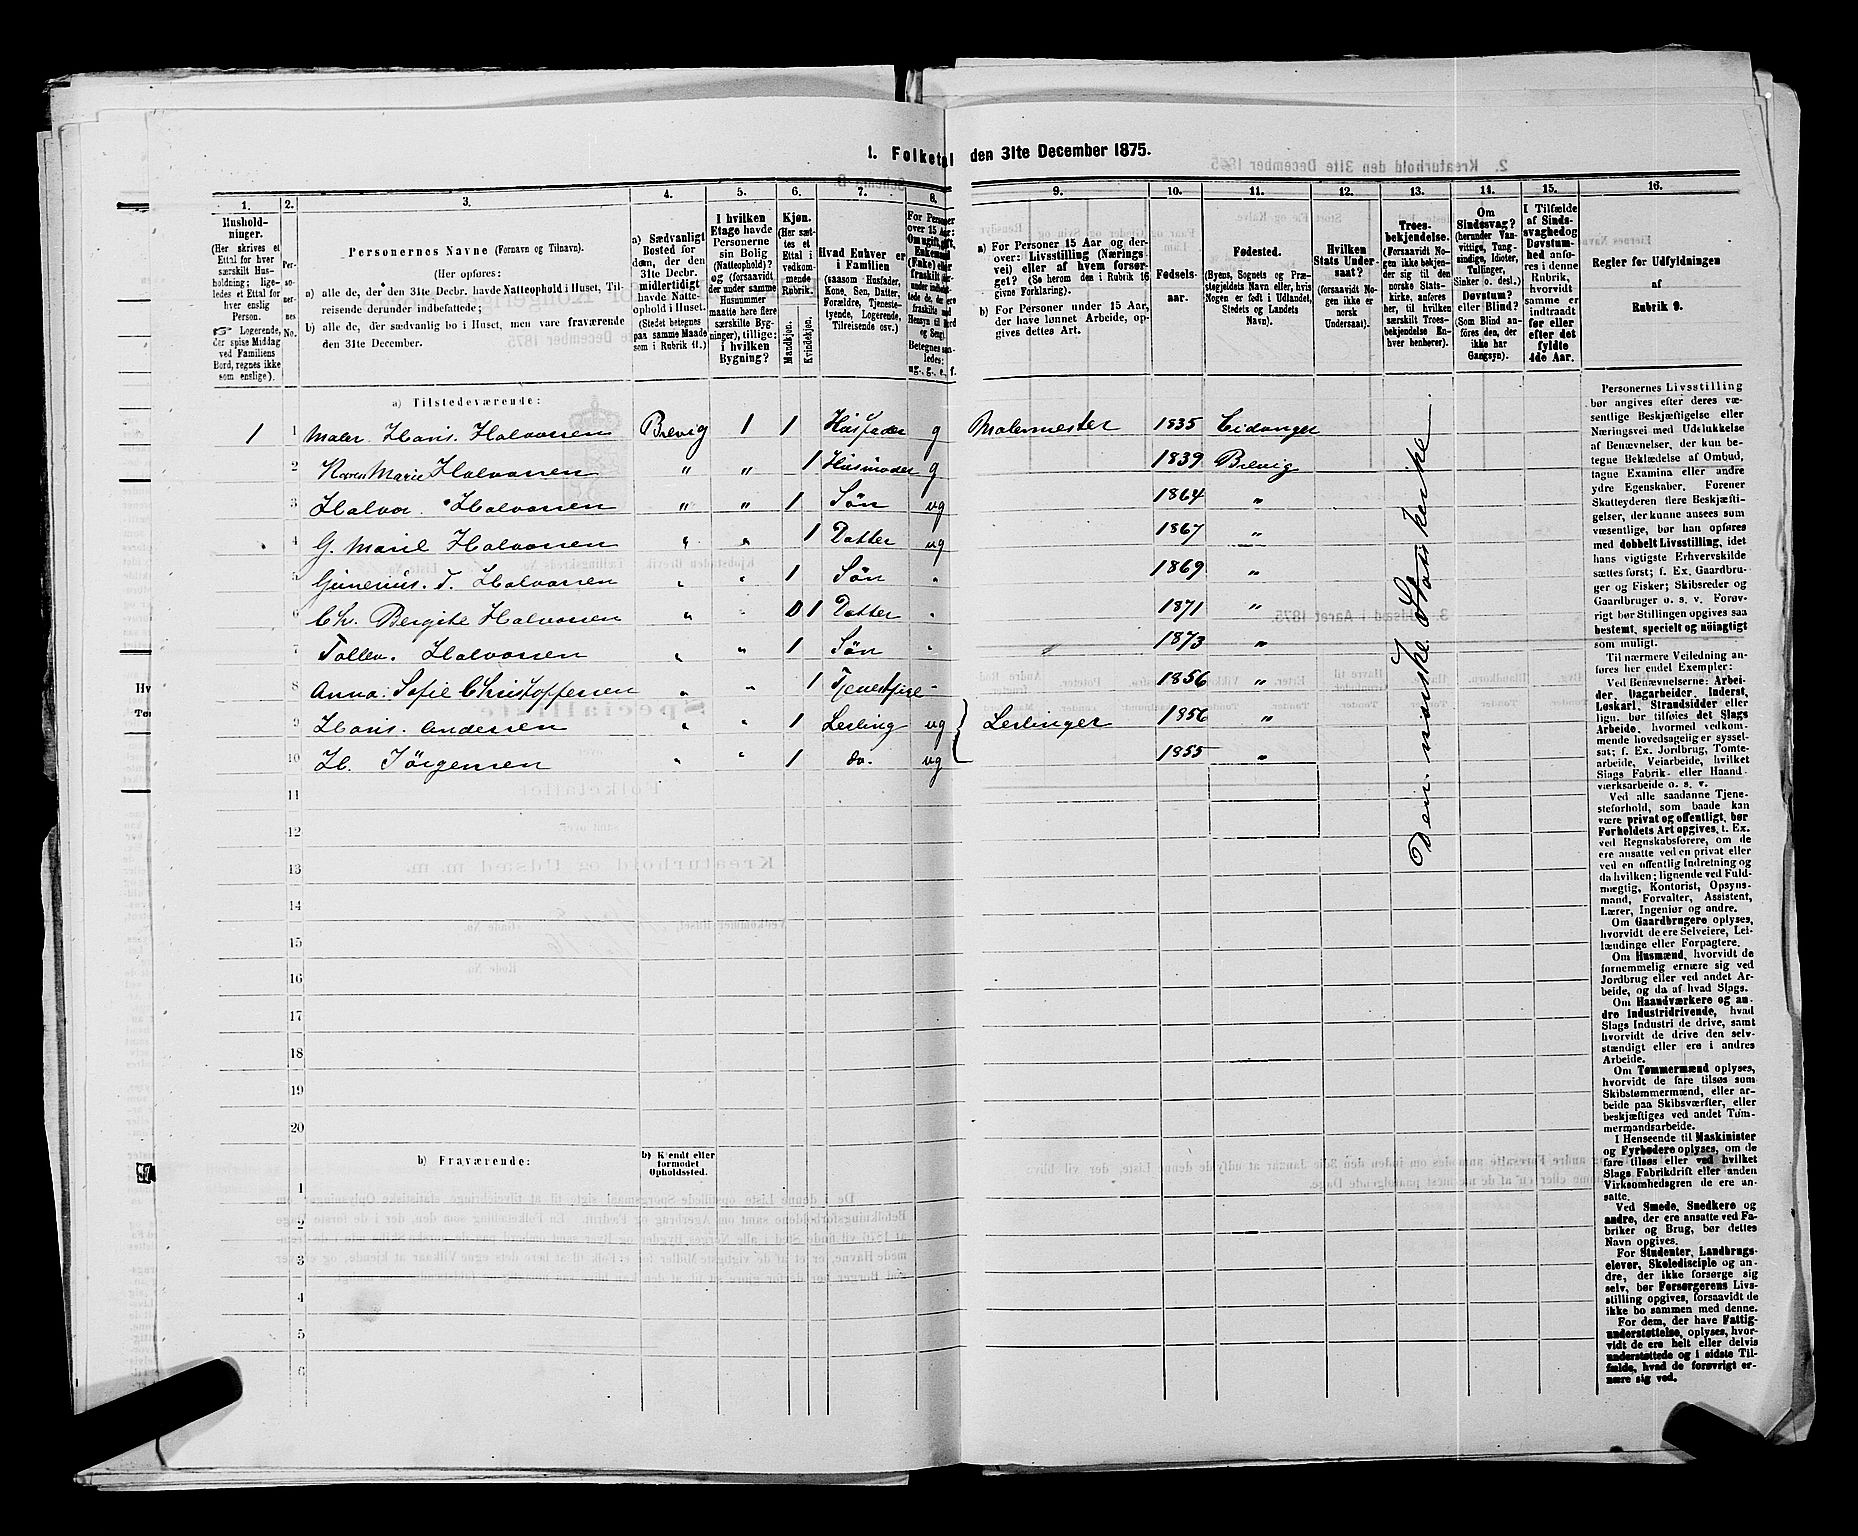 1. Folketal den 31te December 1875.
1. 2. 3. 4. 5. 6. 7. 8. 9. 10. 11. 12. 13. 14. 15. 16.
Hushold-
ninger.
(Her skrives et
Ettal for hver
særskilt Hus-
holdning; lige-
ledes et Ettal for
hver enslig
Person.
Logerende,
der spise Middag
ved Familiens
Bord, regnes ikke
som enslige).
Per-
so-
ner-
nes
No.
Personernes Navne (Fornavn og Tilnavn).
(Her opføres:
a) alle de, der den 31te Decbr. havde Natteophold i Huset, Til-
reisende derunder indbefattede;
b) alle de, der sædvanlig bo i Huset, men vare fraværende
den 31te December.
a) Sædvanligt
Bosted for
dem, der den
31te Decbr.
midlertidigt
havde Natte-
ophold i Huset:
(Stedet betegnes
paa samme Maade
som i Rubrik 11.)
I hvilken
Etage havde
Personerne
sin Bolig
(Natteophold)?
og (forsaavidt
der under samme
Husnummer
maatte høre flere
særskilte Byg-
ninger), tillige:
i hvilken
Bygning?
Kjøn.
(Her sæt-
tes et
Ettal i
vedkom-
mende
Rubrik.)
Mandkjøn.
Kvindekjøn.
Hvad Enhver er
i Familien
(saasom Husfader,
Kone, Søn, Datter,
Forældre, Tjeneste-
tyende, Logerende,
Tilreisende osv.)
a) For Personer 15 Aar og der-
over: Livsstilling (Nærings-
vei) eller af hvem forsør-
get? (Se herom den i Rubrik 16
givne Forklaring).
b) For Personer under 15 Aar,
der have lønnet Arbeide, op-
gives dettes Art.
Fødsels-
aar.
Fødested.
(Byens, Sognets og Præ-
stegjeldets Navn eller, hvis
Nogen er født i Udlandet,
Stedets og Landets
Navn).
Hvilken
Stats Under-
saat?
(forsaavidt No-
gen ikke er
norsk
Undersaat).
Troes-
bekjendelse.
(Forsaavidt No-
gen ikke bekjen-
der sig til den
norske Stats-
kirke, anføres
her, til hvilken
særskilt Troes-
bekjendelse En-
hver henhører).
Om
Sindssvag?
(herunder Van-
vittige, Tung-
sindige, Idioter,
Tullinger,
Sinker o. desl.)
Døvstum?
eller Blind?
(Som Blind an-
føres den, der
ikke har
Gangsyn).
I Tilfælde
af Sinds-
svaghed og
Døvstum-
hed anfø-
res i denne
Rubrik,
hvorvidt
samme er
indtraadt
før eller
efter det
fyldte
4de Aar.
Regler for Udfyldningen
af
Rubrik 9.
a) Tilstedeværende:
1 1 Maler. Hans. Halvorsen Brevig 1 1 Husfader g Malermester 1835 Eidanger
2 Karen Marie Halvorsen " " 1 Husmoder g 1839 Brevig
3 Halvor Halvorsen " " 1 Søn ug 1864 "
4 G. Maril Halvorsen " " 1 Datter ug 1867 "
5 Gunerius. T. Halvorsen " " 1 Søn " 1869 "
6 Ch. Bergite Halvorsen " " 0 1 Datter " 1871 "
7 Tollev. Halvorsen " " 1 Søn " 1873 "
8 Anna. Sofie Christoffersen " " 1 1856 "
9 Hans. Andersen " " 1 Lerling ug Lerlinger 1856 "
10 H. Jørgensen " " 1 do. ug 1855 "
Den norske Statskirke
11
12
13
14
15
16
17
18
19
20
b) Fraværende:
b) Kjendt eller
formodet
Opholdssted.
1
2
3
4
5
6
Personernes Livsstilling
bør angives efter deres væ-
sentlige Beskjæftigelse eller
Næringsvei med Udelukkelse
af Benævnelser, der kun be-
tegne Beklædelse af Ombud,
tagne Examina eller andre
ydre Egenskaber. Forener
Skatteyderen flere Beskjæfti-
gelser, der kunne ansees som
væsentlige, bør han opføres
med dobbelt Livsstilling, idet
hans vigtigste Erhvervskilde
sættes først; f. Ex. Gaardbru-
ger og Fisker; Skibsreder og
Gaardbruger o. s. v. Forøv-
rigt bør Stillingen opgives saa
bestemt, specielt og nøiagtigt
som muligt.
Til nærmere Veiledning an-
føres her endel Exempler:
Ved Benævnelserne: Arbei-
der, Dagarbeider, Inderst,
Løskarl, Strandsidder eller
lign. bør tilføies det Slags
Arbeide, hvormed vedkom-
mende hovedsagelig er syssel-
sat; f. Ex. Jordbrug, Tomte-
arbeide, Veiarbeide, hvilket
Slags Fabrik- eller Haand-
værksarbeide o. s. v.
Ved alle saadanne Tjene-
steforhold, som baade kan
være privat og offentligt, bør
Forholdets Art opgives, f. Ex.
ved Regnskabsførere, om de
ere ansatte ved en privat eller
ved en offentlig Indretning og
da hvilken; lignende ved Fuld-
mægtig, Kontorist, Opsyns-
mand, Forvalter, Assistent,
Lærer, Ingeniør og andre.
Om Gaardbrugere oplyses,
hvorvidt de ere Selveiere, Lei-
lændinge eller Forpagtere.
Om Husmænd, hvorvidt de
fornemmelig ernære sig ved
Jordbrug eller ved andet Ar-
beide, og da af hvad Slags.
Om Haandværkere og an-
dre Industridrivende, hvad
Slags Industri de drive, samt
hvorvidt de drive den selv-
stændigt eller ere i andres
Arbeide.
Om Tømmermænd oplyses,
hvorvidt de fare tilsøs som
Skibstømmermænd, eller ar-
beide paa Skibsværfter, eller
beskjæftiges ved andet Tøm-
mermandsarbeide.
I Henseende til Maskinister
og Fyrbødere oplyses, om de
fare tilsøs eller ved hvilket
Slags Fabrikdrift eller anden
Virksomhedsgren de ere an-
satte.
Ved Smede, Snedkere og
andre, der ere ansatte ved Fa-
briker og Brug, bør dettes
Navn opgives.
For Studenter, Landbrugs-
elever, Skoledisciple og an-
dre, der ikke forsørge sig
selv, bør Forsørgerens Livs-
stilling opgives, forsaavidt de
ikke bo sammen med denne.
For dem, der have Fattig-
understøttelse, oplyses, hvor-
vidt de ere helt eller delvis
understøttede og i sidste Til-
fælde, hvad de forøvrigt er-
nære sig ved.